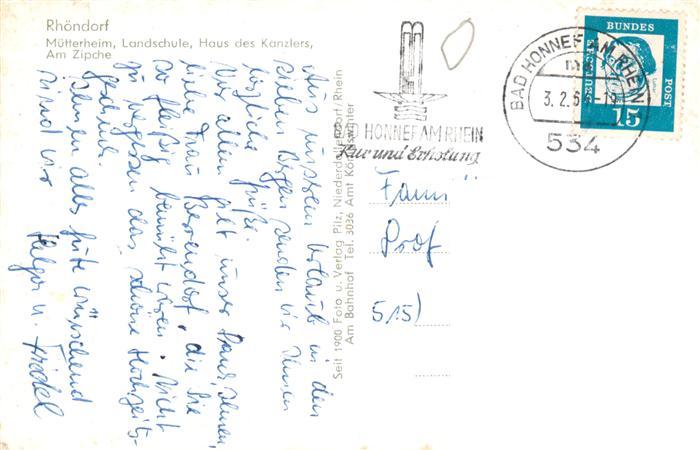 Rhöndorf
Mütterheim, Landschule, Haus des Kanzlers,
Am Zipche
Aus unserem Urlaub in den
sieben Bergen senden wir Ihnen
herzliche Grüße.
Vor allem gilt unser Dank, Ihnen,
liebe Frau die Sie
so fleißig bemüht waren. Nicht
zu vergessen das schöne Hochzeits-
geschenk.
Ihnen alles Gute wünschend
sind wir
Helga u. Friedel
Seit 1900 Foto u. Verlag Pilz, Niederdollendorf/Rhein
Am Bahnhof Tel. 3036 Amt Königswinter
BAD HONNEF AM RHEIN
Kur und Erholung
BAD HONNEF AM RHEIN
3.2.
534
DEUTSCHE
BUNDES
POST
15
Famil
Prof
515